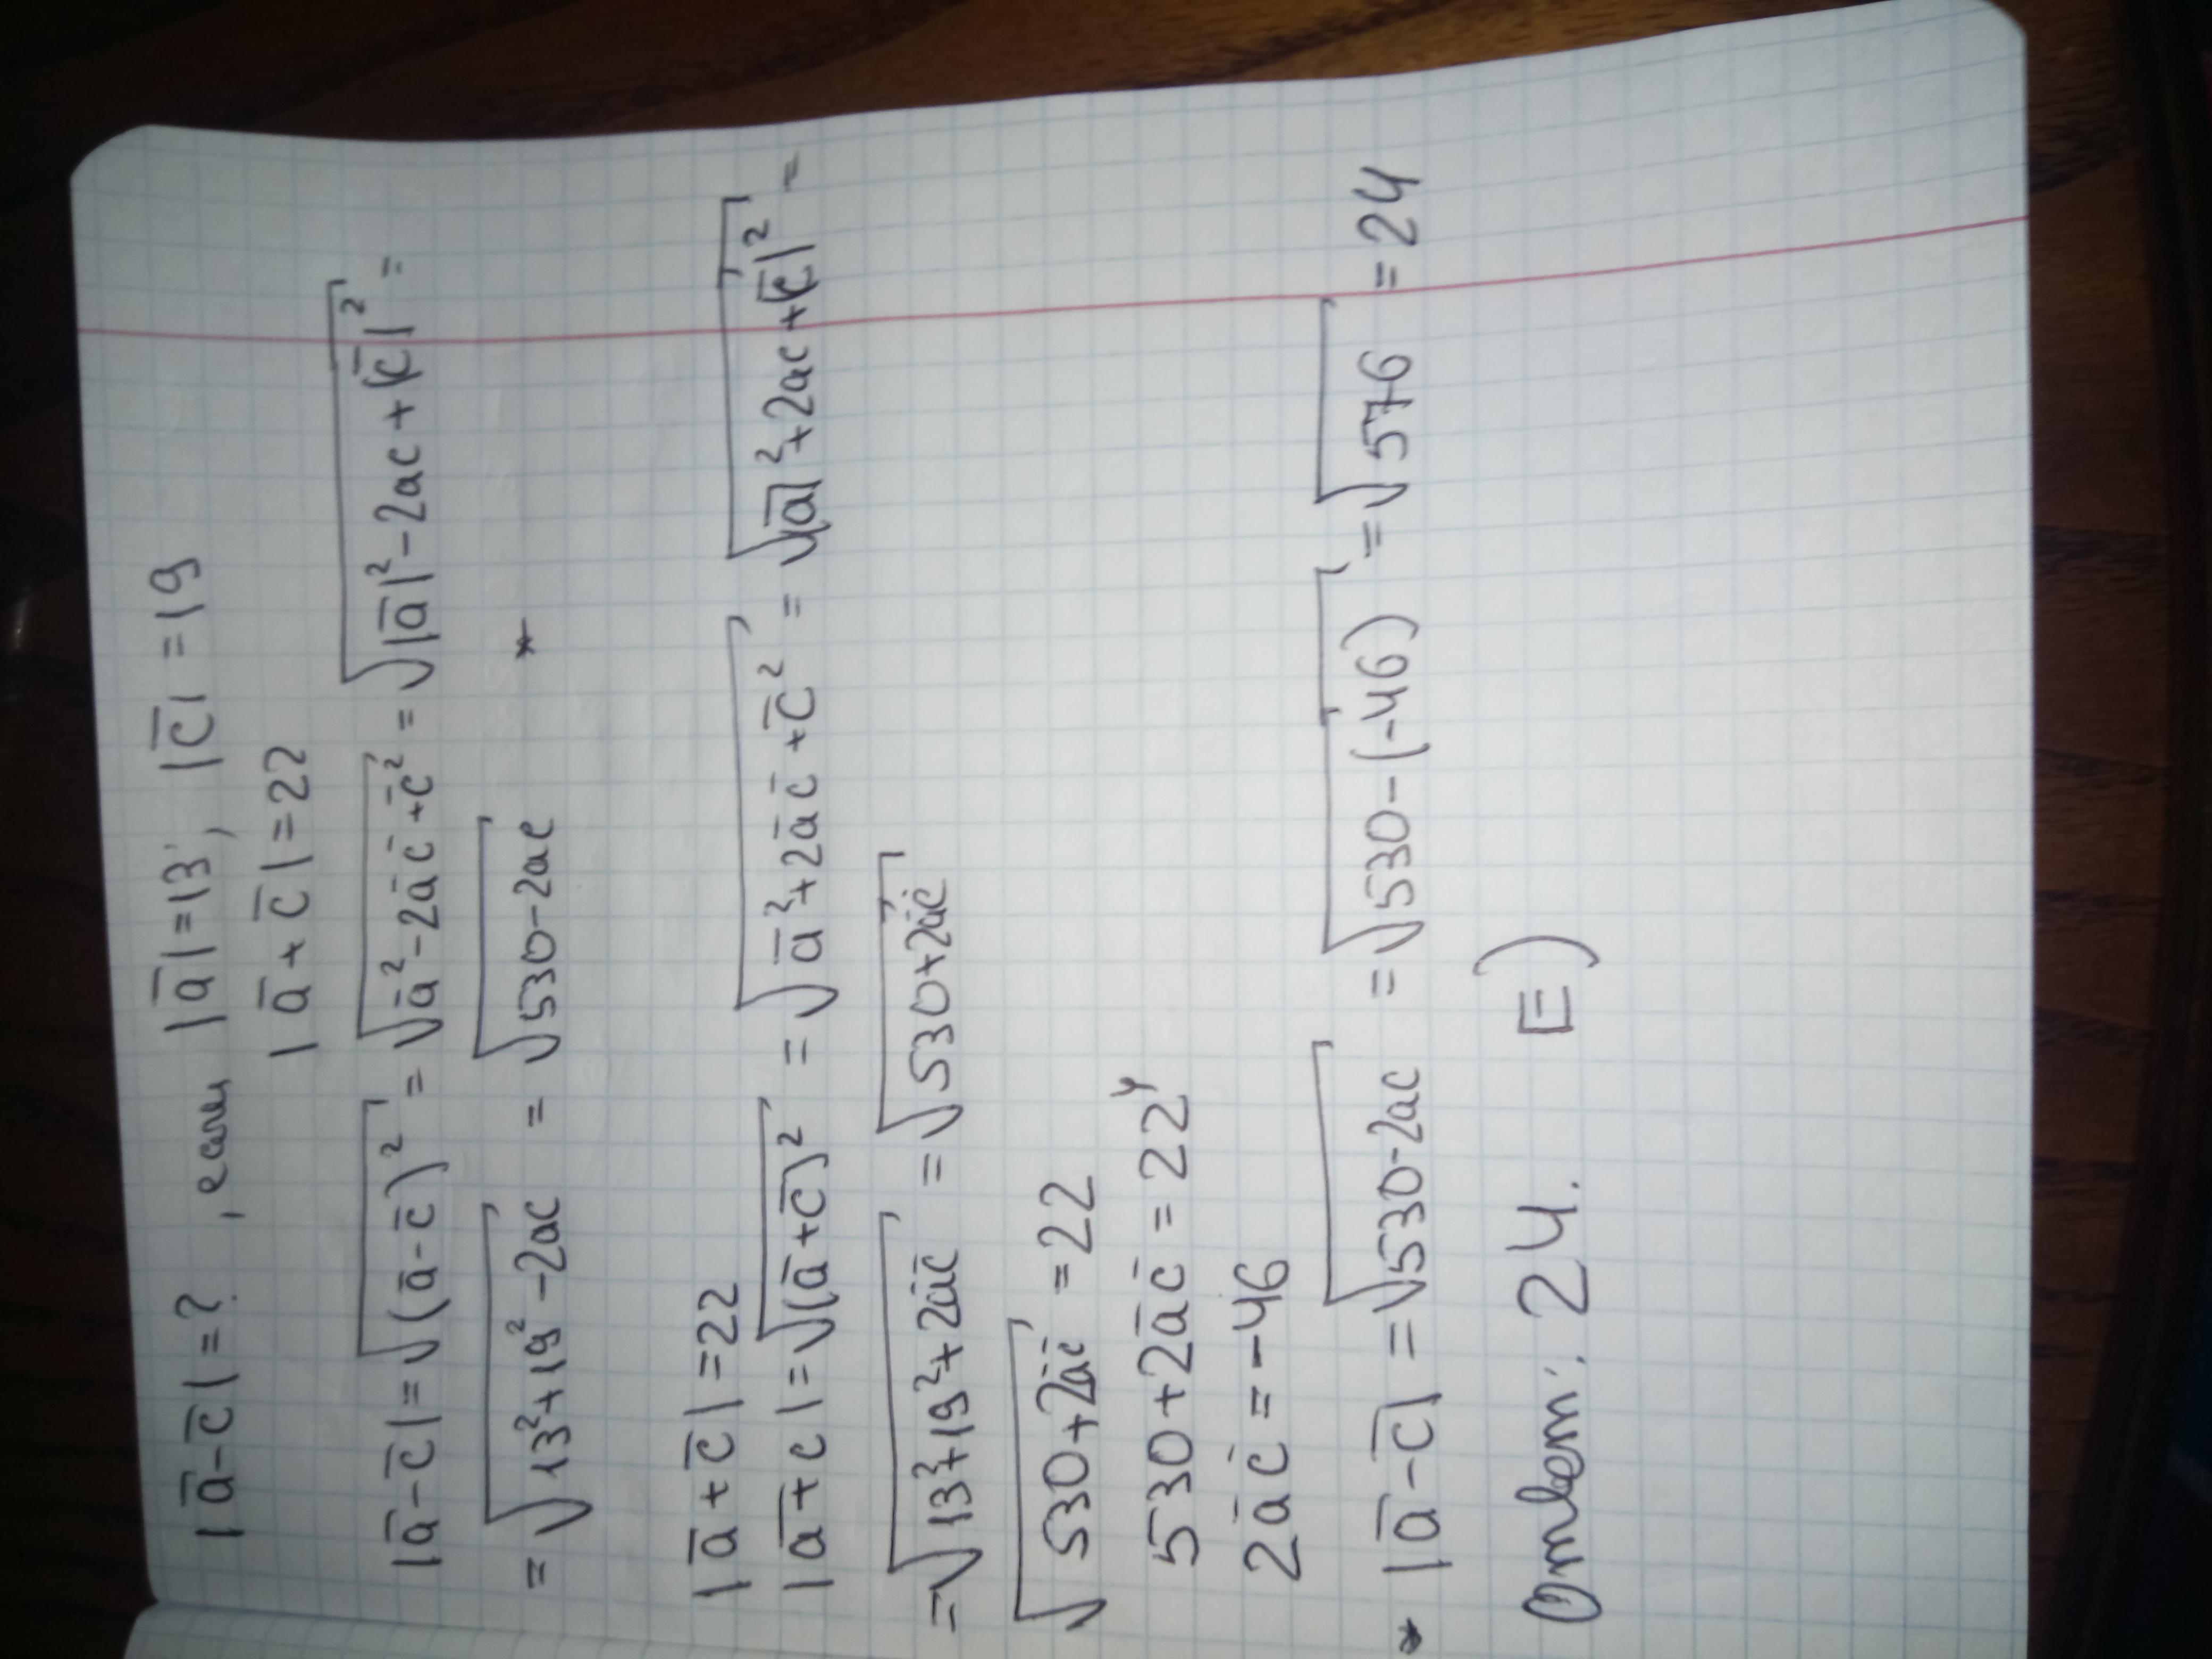 |a̅-c̅|=? , если |a̅|=13, |c̅|=19
|a̅+c̅|=22
|a̅-c̅|=√(a̅-c̅)² = √a̅²-2a̅c̅+c̅² = √|a̅|²-2ac+|c̅|² =
= √13²+19²-2ac = √530-2ac *
|a̅+c̅|=22
|a̅+c|=√(a̅+c̅)² = √a̅²+2a̅c̅+c̅² = √|a̅|²+2ac+|c̅|² =
=√13²+19²+2a̅c̅ = √530+2a̅c̅
√530+2a̅c̅ = 22
530+2a̅c̅ = 22⁴
2a̅c̅ = -46
* |a̅-c̅| = √530-2ac = √530-(-46) = √576 = 24
Ответ: 24. E)